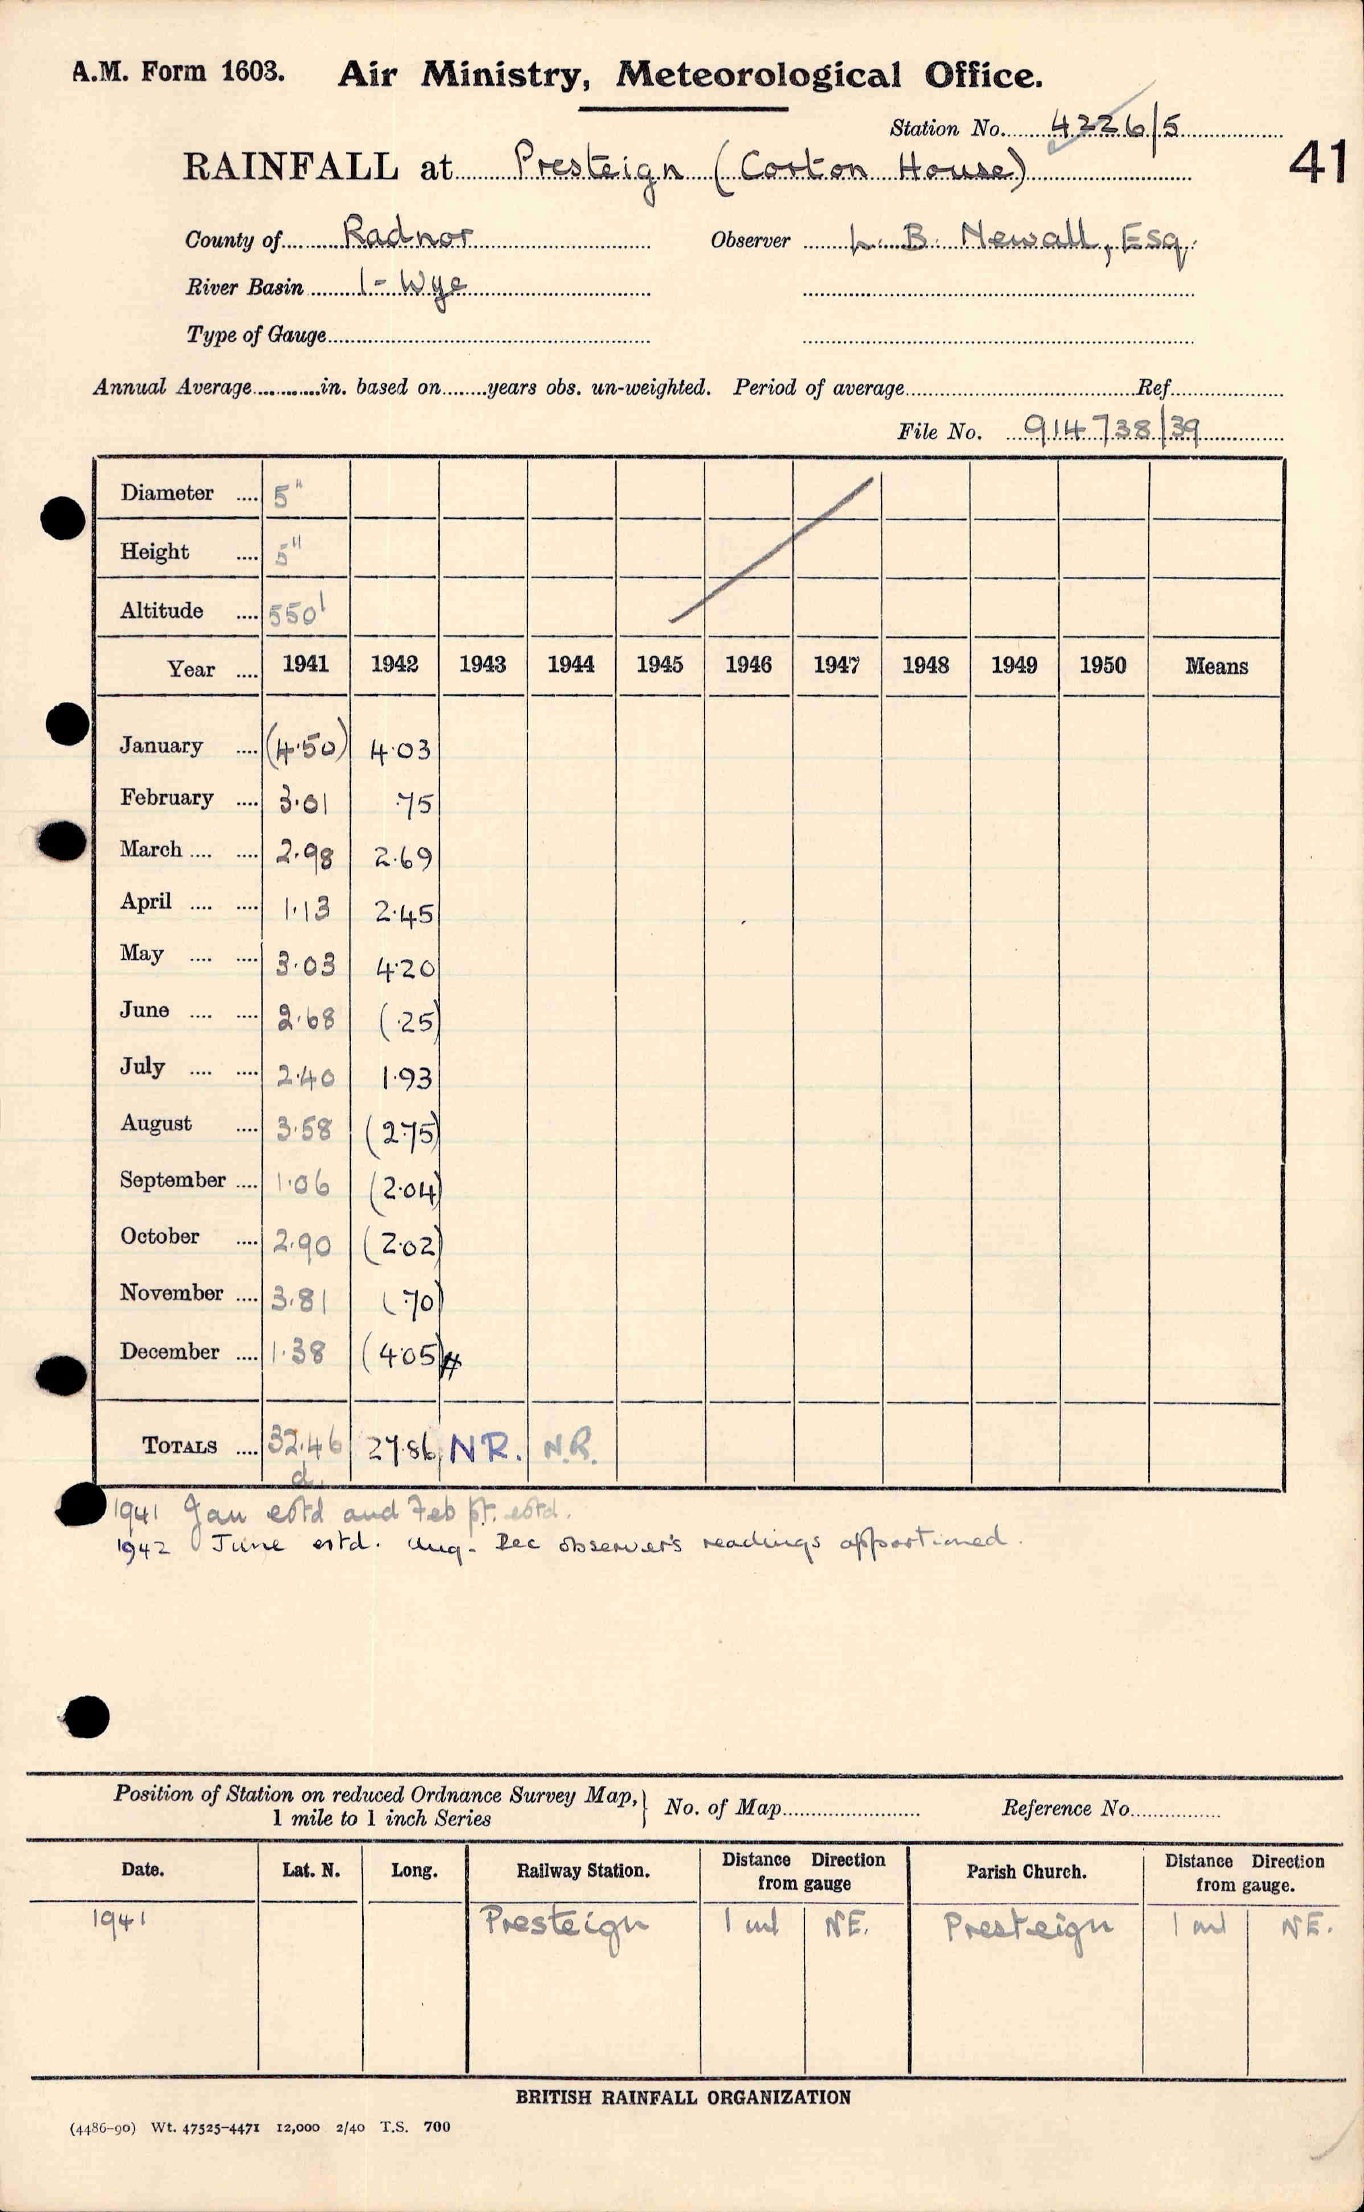 A.M. Form 1603. Air Ministry, Meteorological Office.
Station No. 4226/5
41
RAINFALL at Presteign (Corton House)
County of Radnor Observer L. B. Newall, Esq.
River Basin 1 - Wye
Type of Gauge
Annual Average in. based on years obs. un-weighted. Period of average Ref
File No. 914738/39
Diameter .... 5"
Height .... 5"
Altitude .... 550'
Year .... 1941 1942 1943 1944 1945 1946 1947 1948 1949 1950 Means
January .... (4.50) 4.03
February .... 3.01 .75
March .... .... 2.98 2.69
April .... .... 1.13 2.45
May .... .... 3.03 4.20
June .... .... 2.68 (.25)
July .... .... 2.40 1.93
August .... 3.58 (2.75)
September .... 1.06 (2.04)
October .... 2.90 (2.02)
November .... 3.81 (.70)
December .... 1.38 (4.05)#
TOTALS .... 32.46 27.86 N R. N.R.
d.
1941 Jan estd and Feb pt. estd.
1942 June estd. Aug - Dec observer's readings apportioned.
Position of Station on reduced Ordnance Survey Map, } No. of Map Reference No.
1 mile to 1 inch Series
Date. Lat. N. Long. Railway Station. Distance Direction from gauge Parish Church. Distance Direction from gauge.
1941 Presteign 1 ml NE. Presteign 1 ml NE.
BRITISH RAINFALL ORGANIZATION
(4486-90) Wt. 47525-4471 12,000 2/40 T.S. 700